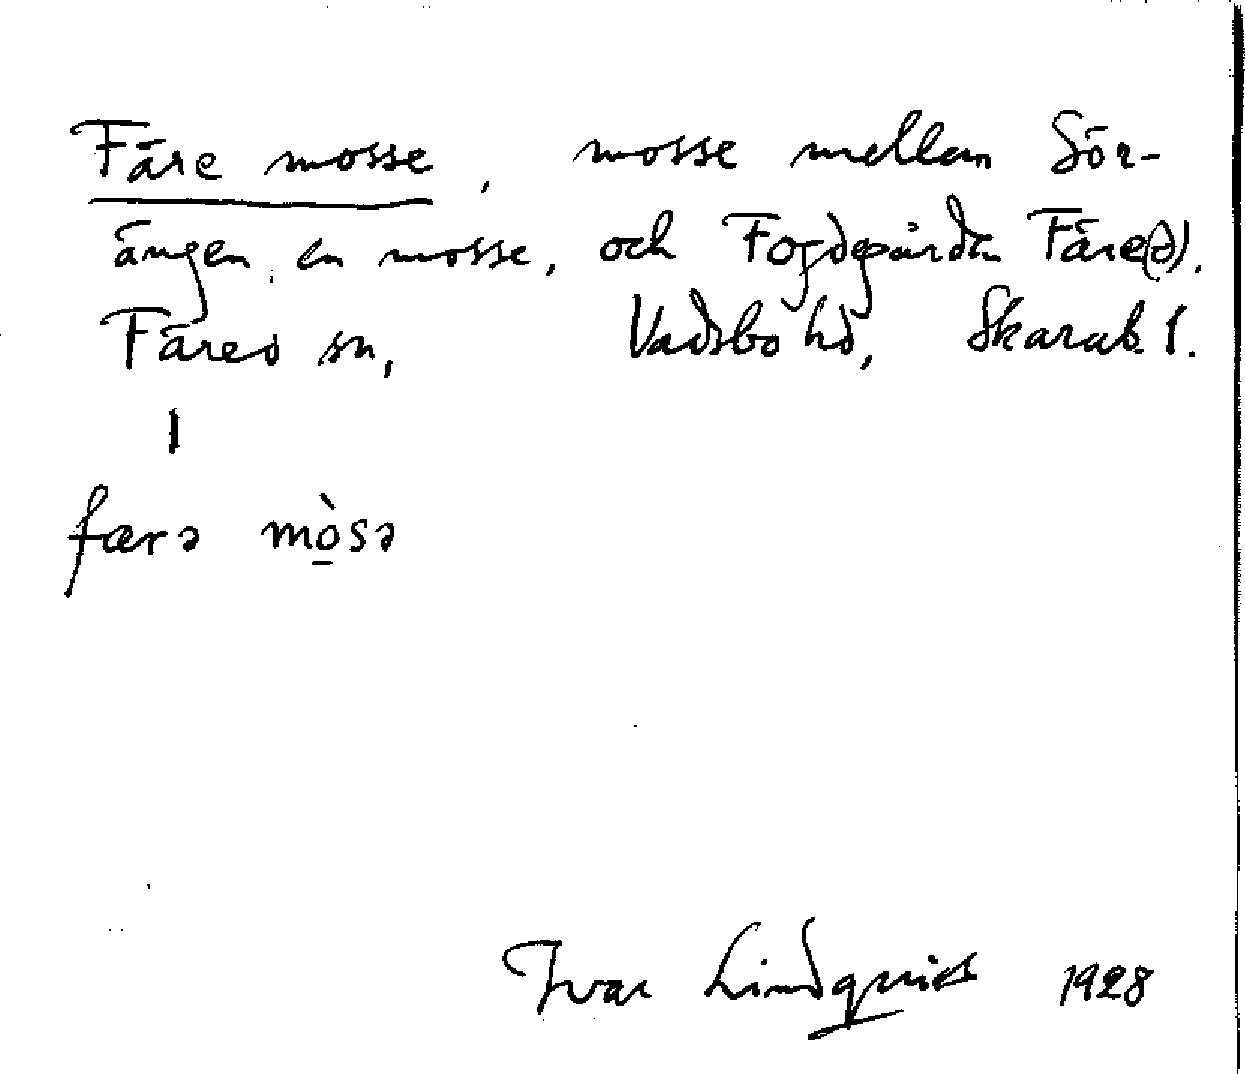 Färe mosse, mosse mellan Sör-
ängen, en mosse, och Fogdegården Färe(d).
Färeds sn, Vadsbo hd, Skarab. l.
|
færə mòsə
Ivar Lindquist 1928